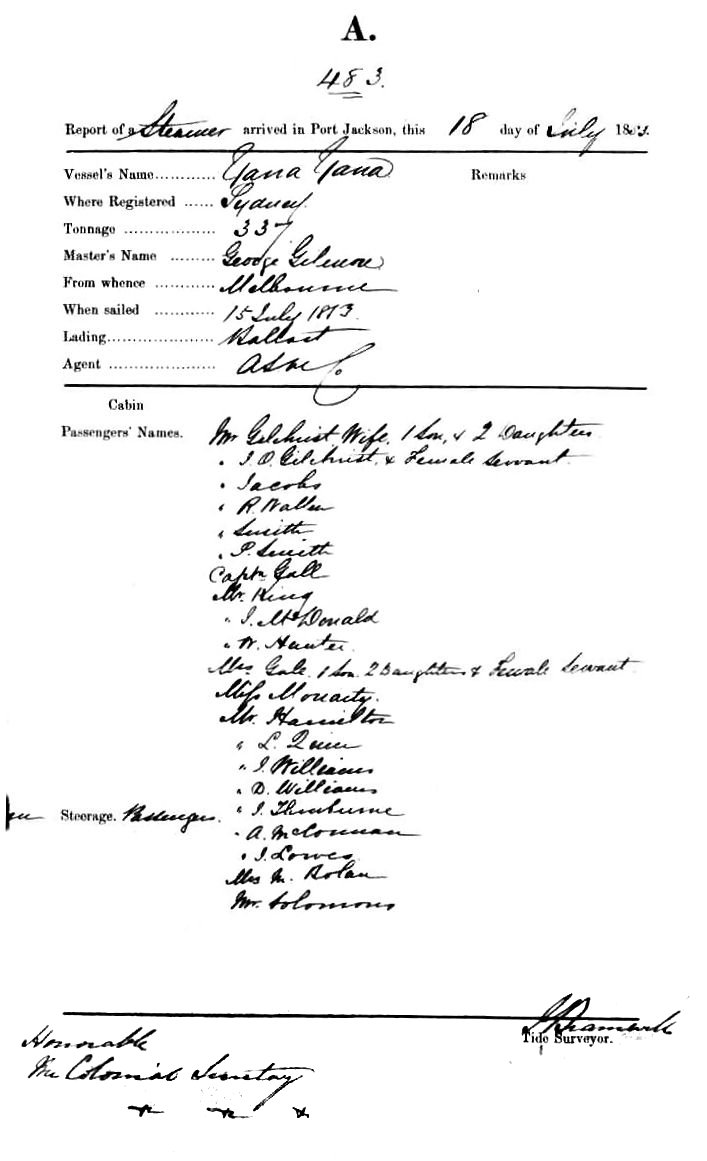 A.
483.
Report of a Steamer arrived in Port Jackson, this 18 day of July 1853.
Vessel's Name............ Yarra Yarra Remarks
Where Registered ...... Sydney
Tonnage .................. 337
Master's Name ......... George Gilmore
From whence ............ Melbourne
When sailed ............ 15 July 1853.
Lading....................... Ballast
Agent ..................... ASN Co
Cabin
Passengers' Names. Mr Gilchrist, Wife, 1 Son, & 2 Daughters
" J. O. Gilchrist & Female Servant
" Jacobs
" R. Waller
" Smith
" P. Smith
Captn Gall
Mr. King
" J. McDonald
" W. Hunter.
Mrs Gale. 1 Son. 2 Daughters & Female Servant
Miss Moriarty.
Mr. Hamilton
" L.
" J. Williams
" D. Williams
Steerage. Passengers. " J. Thurburne
" A. McConnan
" J. Lowes
Mrs M. Bolan
Mr. Solomons
J Bramwell
Tide Surveyor.
Honorable
The Colonial Secretary